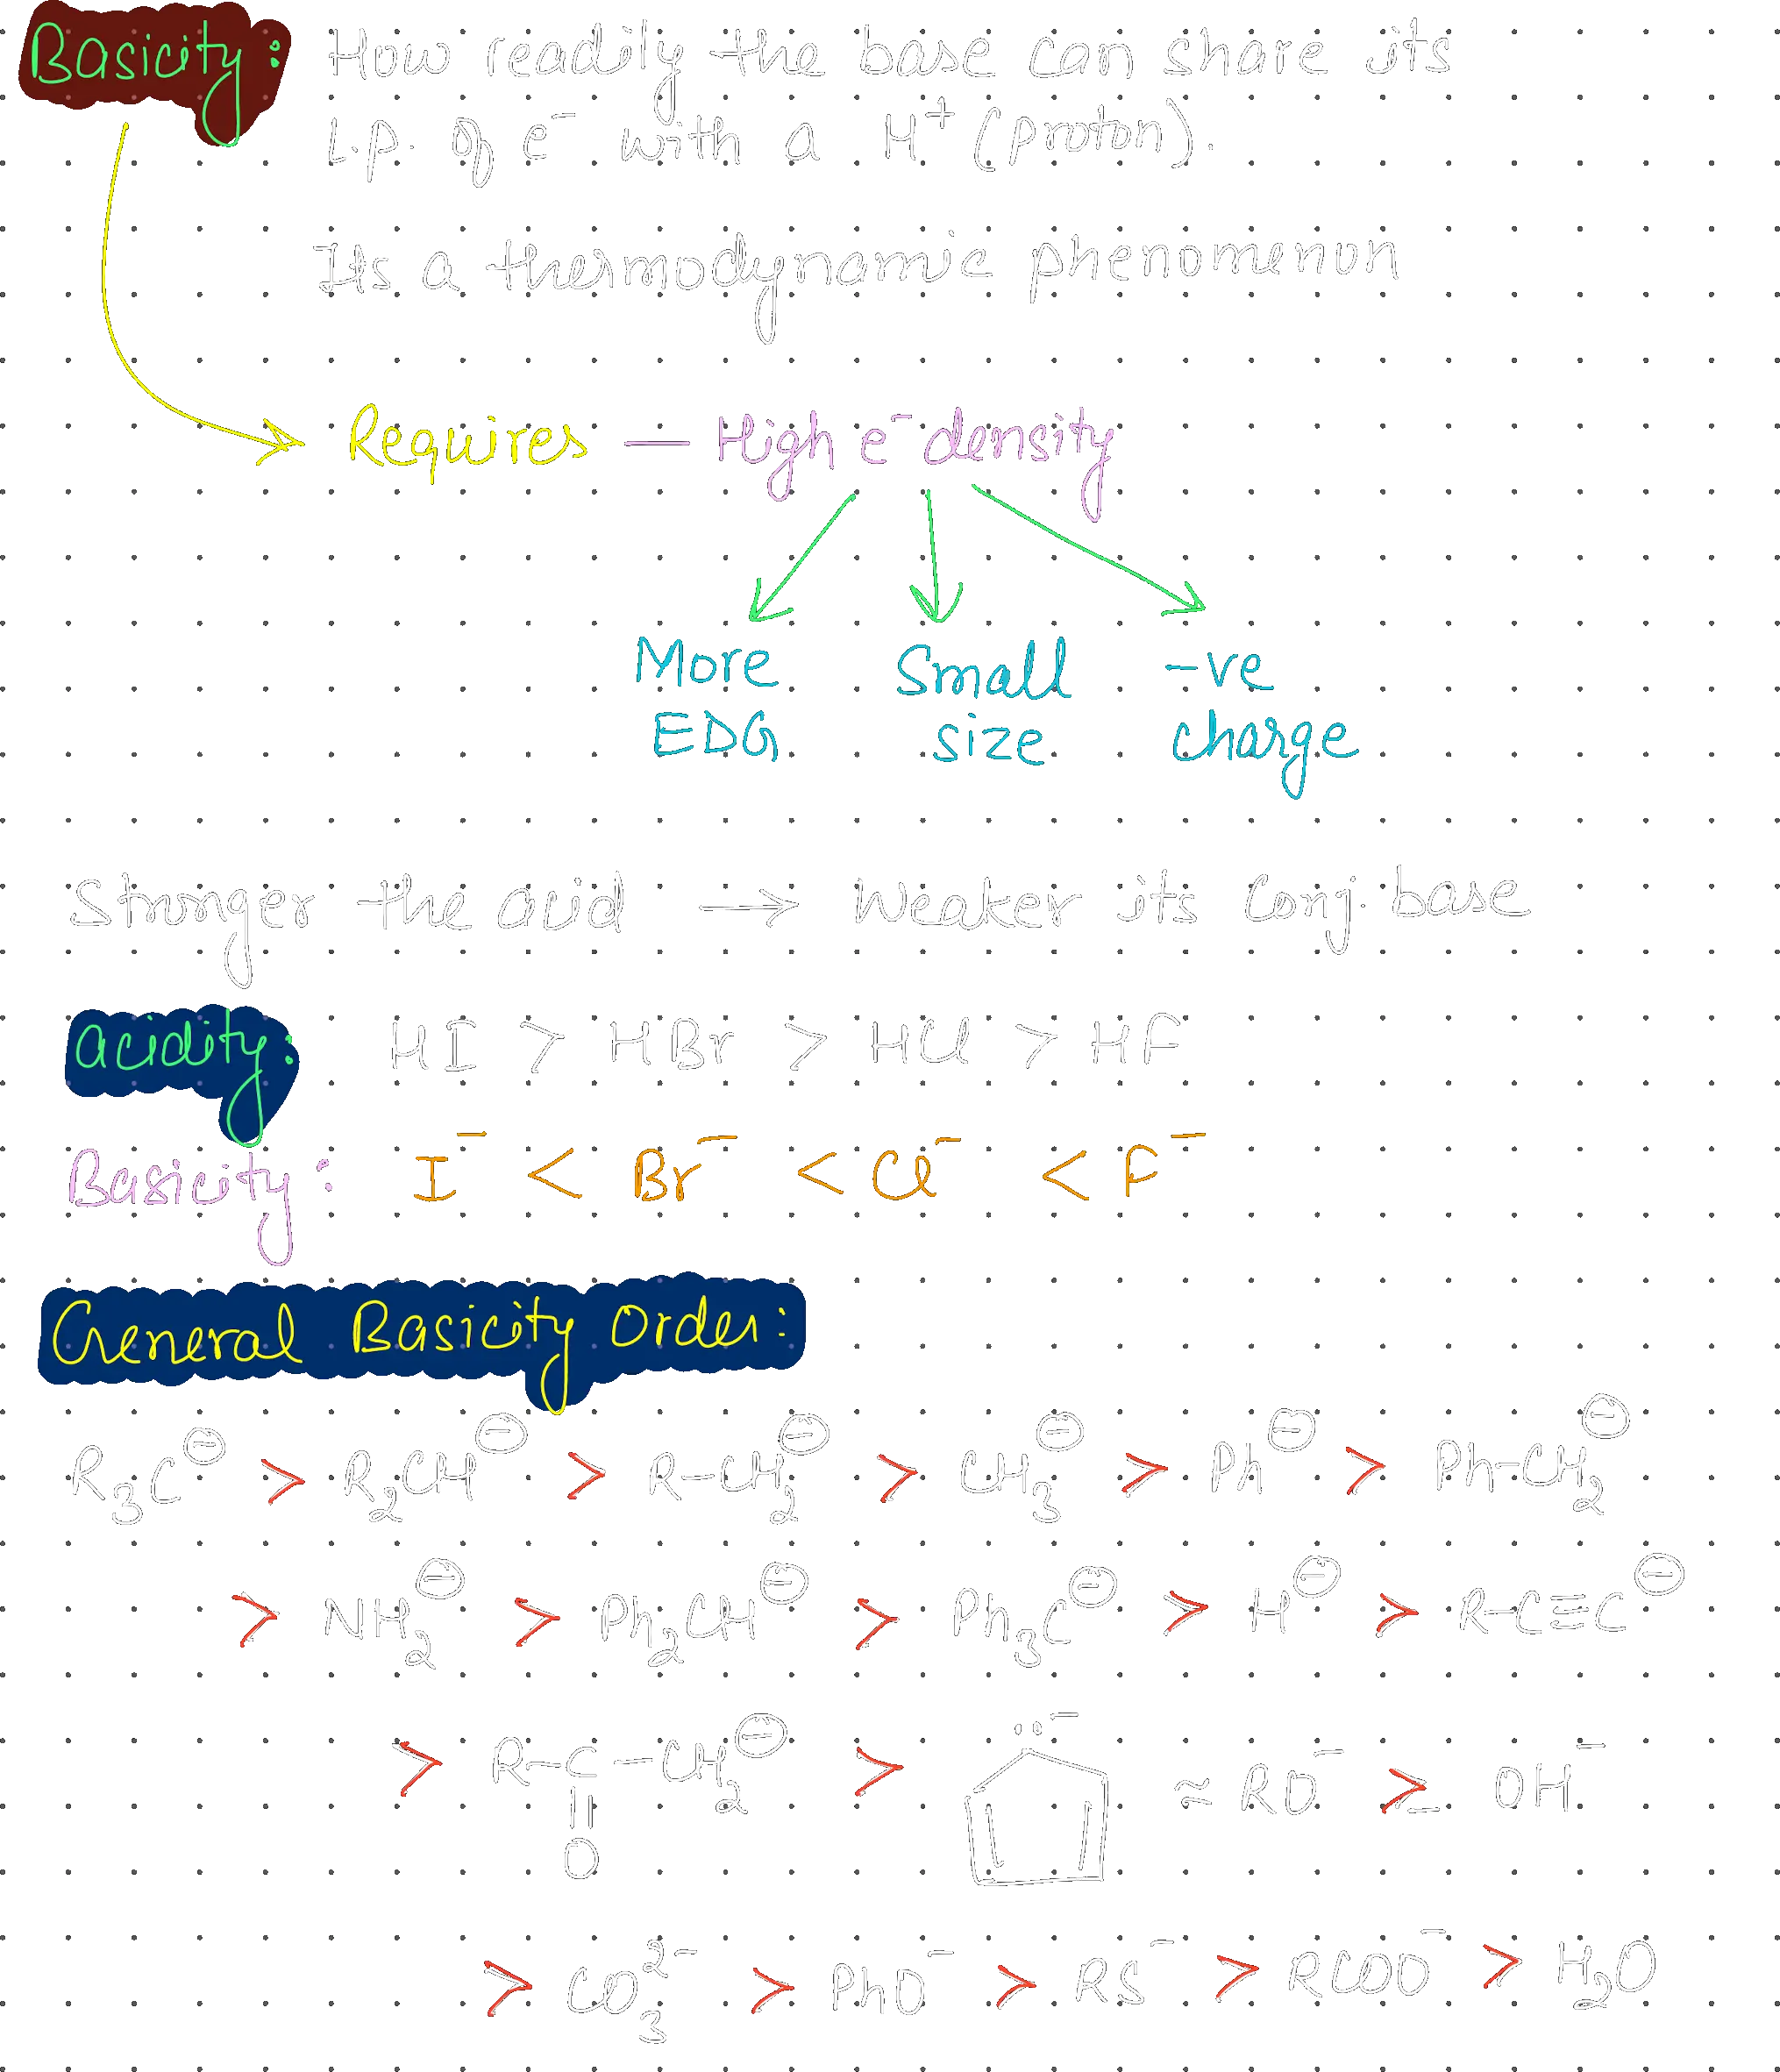 Basicity: How readily the base can share its
l.p. of e⁻ with a H⁺ (proton).
Its a thermodynamic phenomenon
Requires — High e⁻ density
More EDG
Small size
-ve charge
Stronger the acid → Weaker its conj. base
Acidity: HI > HBr > HCl > HF
Basicity: I⁻ < Br⁻ < Cl⁻ < F⁻
General Basicity Order:
R₃C⊖ > R₂CH⊖ > R-CH₂⊖ > CH₃⊖ > Ph⊖ > Ph-CH₂⊖
> NH₂⊖ > Ph₂CH⊖ > Ph₃C⊖ > H⊖ > R-C≡C⊖
> R-C-CH₂⊖ > ≈ RO⁻ ≥ OH⁻
O
> CO₃²⁻ > PhO⁻ > RS⁻ > RCOO⁻ > H₂O